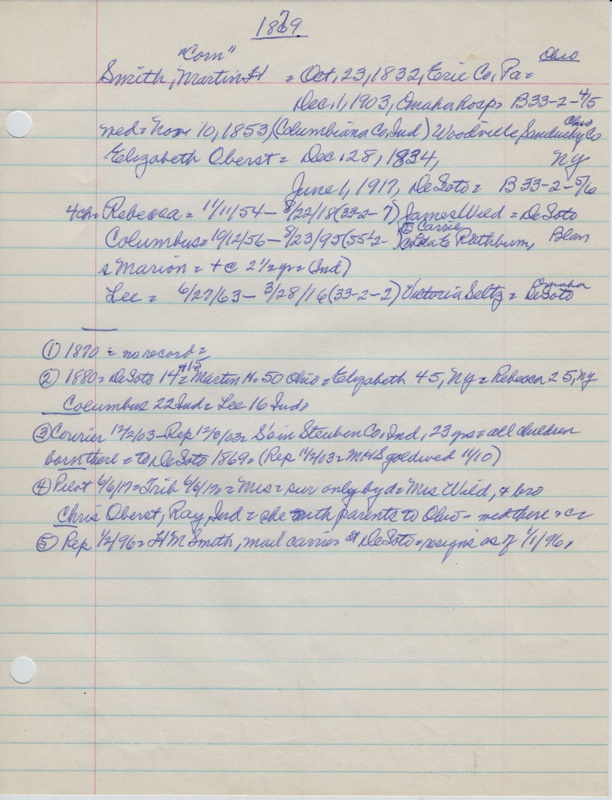 1869
7
"Corn"
Ohio
Smith, Martin H = Oct, 23, 1832, Erie Co, Pa =
Dec. 1, 1903, Omaha Hosp = B33-2-4/5
med = Nov 10, 1853, (Columbiana Co, Ind) Woodville, Sandusky Co
Ohio
Elizabeth Oberst = Dec. 28, 1834, NY
June 1, 1917, DeSoto = B33-2-5/6
4ch = Rebecca = 11/11/54 - 8/22/18 (33-2-7) James Wild = DeSoto
Columbus = 10/12/56 - 8/23/95 (55½-2 Carrie Rathburn, Blair
s Marion = + @ 2½ yr = (Ind)
Lee = 6/27/63 - 3/28/16 (33-2-2) Victoria Seltz = DeSoto
Omaha
① 1870 = no record =
② 1880 = DeSoto 14 = #15 Martin H = 50 Ohio = Elizabeth 45, NY = Rebecca 25, NY
Columbus 22 Ind = Lee 16 Ind
③ Courier 12/2/03 - Rep 12/10/03 = S's in Steuben Co, Ind, 23 yrs = all children
born there = to DeSoto 1869 = (Rep 11/12/03 = MHS gold wed 11/10)
④ Pilot 6/6/17 = Trib 6/6/17 = Mrs = sur only by d = Mrs Wild, & bro
Chris Oberst, Ray, Ind = she with parents to Ohio - med there =
⑤ Rep 1/2/96 = H M Smith, mail carrier @ DeSoto = resigns as of 1/1/96,